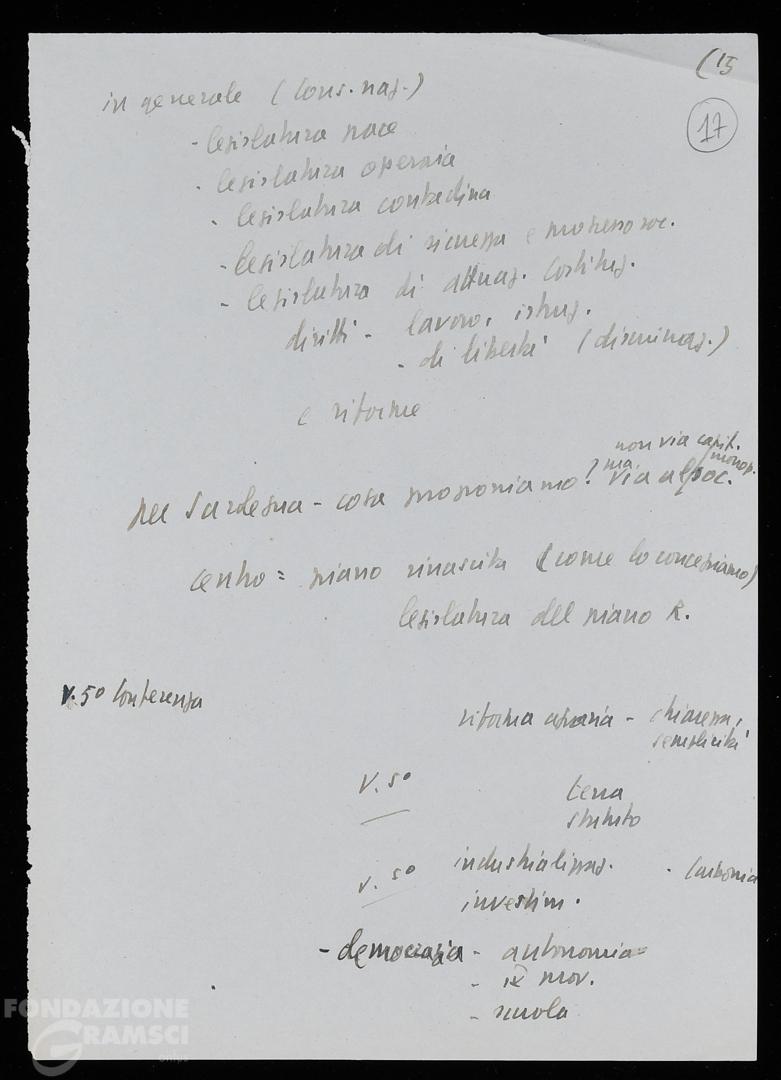 (15
17
in generale (Cons. naz.)
- legislatura pace
- legislatura operaia
- legislatura contadina
- legislatura di ricchezza e progresso soc.
- legislatura di attuaz. Costituz.
diritti - lavoro, istruz.
- di libertà (discriminaz.)
e riforme
non via capit.
monop.
per Sardegna - cosa proponiamo? ma via al soc.
centro = piano rinascita (come lo concepiamo)
legislatura del piano R.
V. 5° Conferenza
riforma agraria - chiarezza,
semplicità
V. 5°
terra
statuto
V. 5° industrializzaz. - Carbonia
investim.
- democrazia - autonomia
- mov.
- scuola
FONDAZIONE
GRAMSCI
onlus